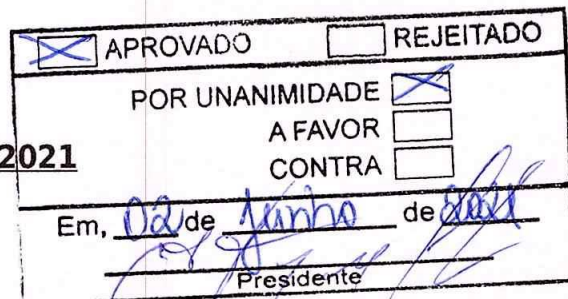 APROVADO REJEITADO
POR UNANIMIDADE
A FAVOR
2021
CONTRA
Em, 02 de Junho de 2021
Presidente